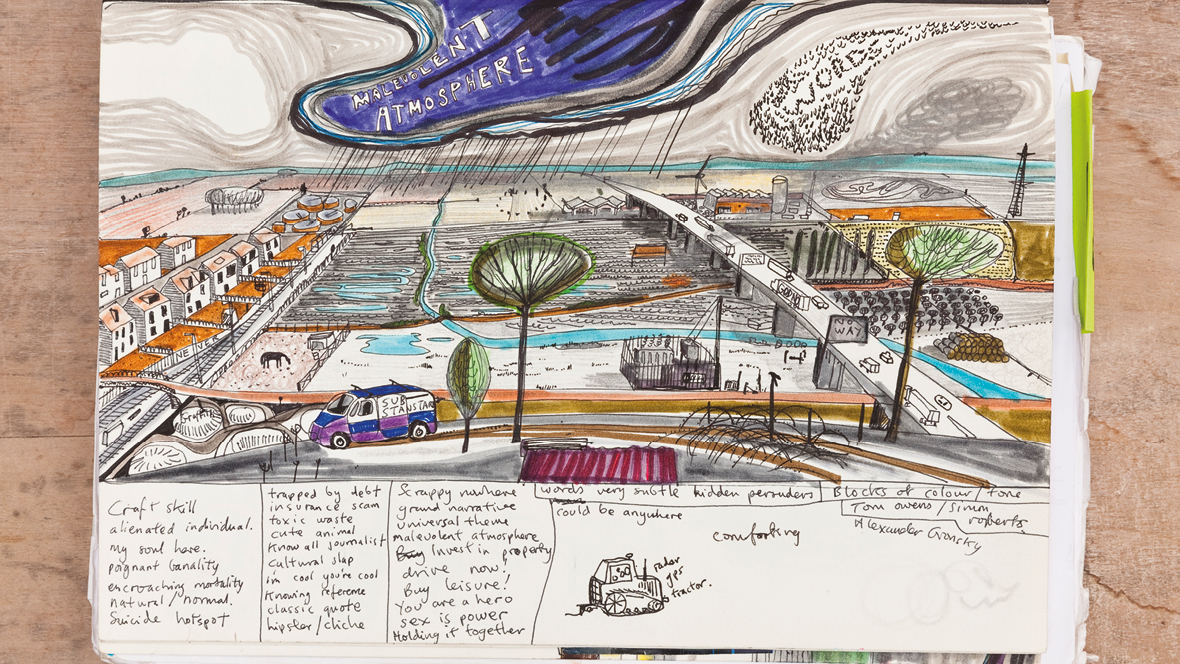 MALEVOLENT
ATMOSPHERE
WORDS
WAY
NE
Graffiti
SUB
STA
Craft skill
alienated individual.
my soul here.
poignant banality
encroaching mortality
natural/normal.
Suicide hotspot
trapped by debt
insurance scam
toxic waste
cute animal
Know all journalist
cultural slap
im cool you're cool
Knowing reference
classic quote
hipster/cliche
Scrappy nowhere
grand narrative
universal theme
malevolent atmosphere
Buy Invest in property
drive now!
Buy leisure!
You are a hero
sex is power
Holding it together
words very subtle hidden persuaders
could be anywhere
comforting
radar
gps
tractor.
Blocks of colour/tone
Tom owens/Simon
roberts
Alexander Gronsky